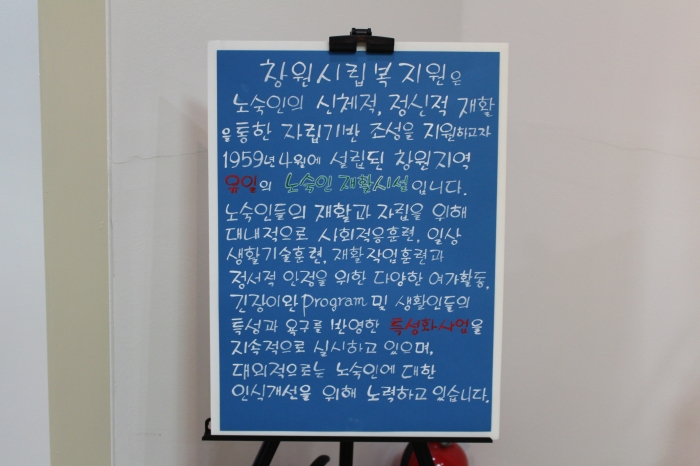 창원시립복지원은
노숙인의 신체적, 정신적 재활
을 통한 자립기반 조성을 지원하고자
1959년 4월에 설립된 창원지역
유일의 노숙인 재활시설입니다.
노숙인들의 재활과 자립을 위해
대내적으로 사회적응훈련, 일상
생활기술훈련, 재활작업훈련과
정서적 안정을 위한 다양한 여가활동,
긴장이완program 및 생활인들의
특성과 욕구를 반영한 특성화사업을
지속적으로 실시하고 있으며,
대외적으로는 노숙인에 대한
인식개선을 위해 노력하고 있습니다.